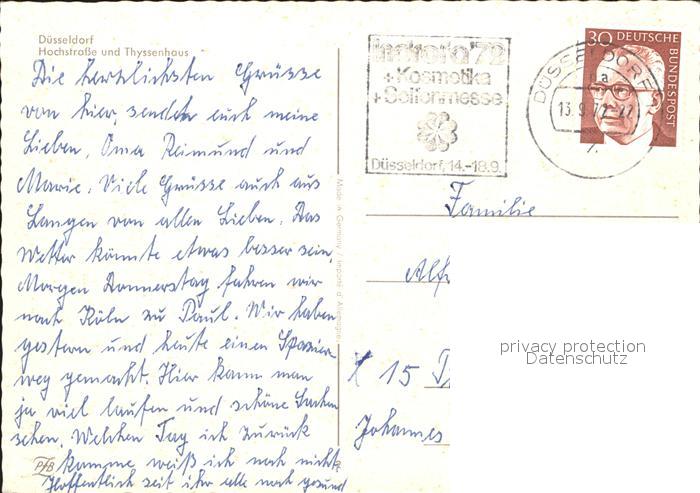 Düsseldorf
Hochstraße und Thyssenhaus
Die herzlichsten Grüsse
von hier, senden euch meine
Lieben, Oma Reimund und
Marie. Viele Grüsse auch aus
Langen von allen Lieben. Das
Wetter könnte etwas besser sein,
Morgen Donnerstag fahren wir
nach Köln zu Paul. Wir haben
gestern und heute einen Spazier-
weg gemacht. Hier kann man
ja viel laufen und schöne Sachen
sehen. Welchen Tag ich zurück
komme weiß ich noch nicht.
Hoffentlich seit ihr alle noch gesund
Made in Germany / Importé d'Allemagne
'72
+Kosmetika
+Seifenmesse
Düsseldorf, 14.-18.9.
DÜSSELDORF
na
13.9.72-22
30 DEUTSCHE BUNDESPOST
Familie
Alf
X 15
Johannes
privacy protection
Datenschutz